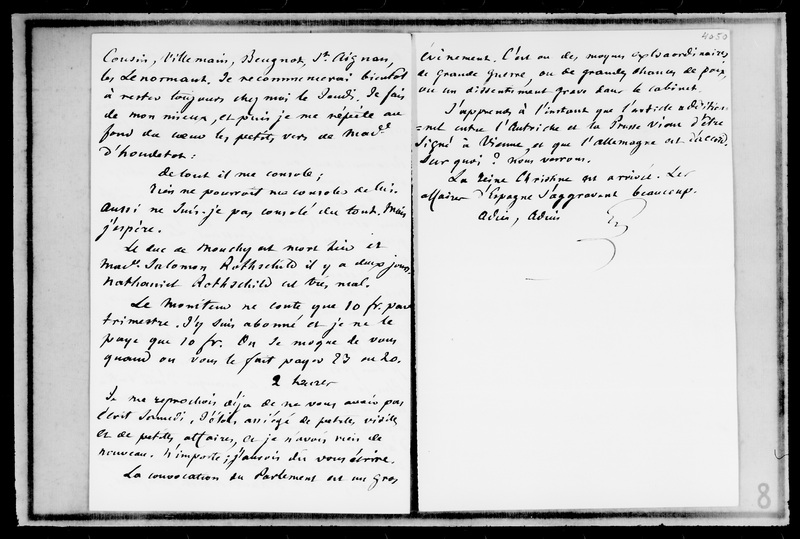 Cousin, Villemain, Beugnot, St Aignan,
les Lenormant. Je recommencerai bientôt
à rester toujours chez moi le Jeudi. Je fais
de mon mieux, et puis je me répète au
fond du cœur les petits vers de Made
d'houdetot :
de tout, il me console ;
rien ne pourroit me consoler de lui.
Aussi ne suis-je pas consolé du tout. Mais
j'espère.
Le duc de Mouchy est mort hier et
made Salomon Rothschild il y a deux jours.
Nathaniel Rothschild est très mal.
Le Moniteur ne coute que 10 fr. par
trimestre. J'y suis abonné et je ne le
paye que 10 fr. On se moque de vous
quand on vous le fait payer 23 ou 20.
2 heures
Je me reprochois déja de ne vous avoir pas
écrit Samedi. J'étois assiégé de petites visites
et de petites affaires, et je n'avois rien de
nouveau. N'importe ; j'aurois du vous écrire.
La convocation du Parlement est un gros
4050
évènement. C'est ou des moyens extraordinaires
de grande guerre, ou de grandes chances de paix,
ou un dissentiment grave dans le cabinet.
J'apprends à l'instant que l'article addition-
=nel entre l'Autriche et la Prusse vient d'être
signé à Vienne, et que l'allemagne est d'accord.
Sur quoi ? nous verrons.
La reine Christine est arrivée. Les
affaires d'Espagne s'aggravent beaucoup.
Adieu, Adieu
8